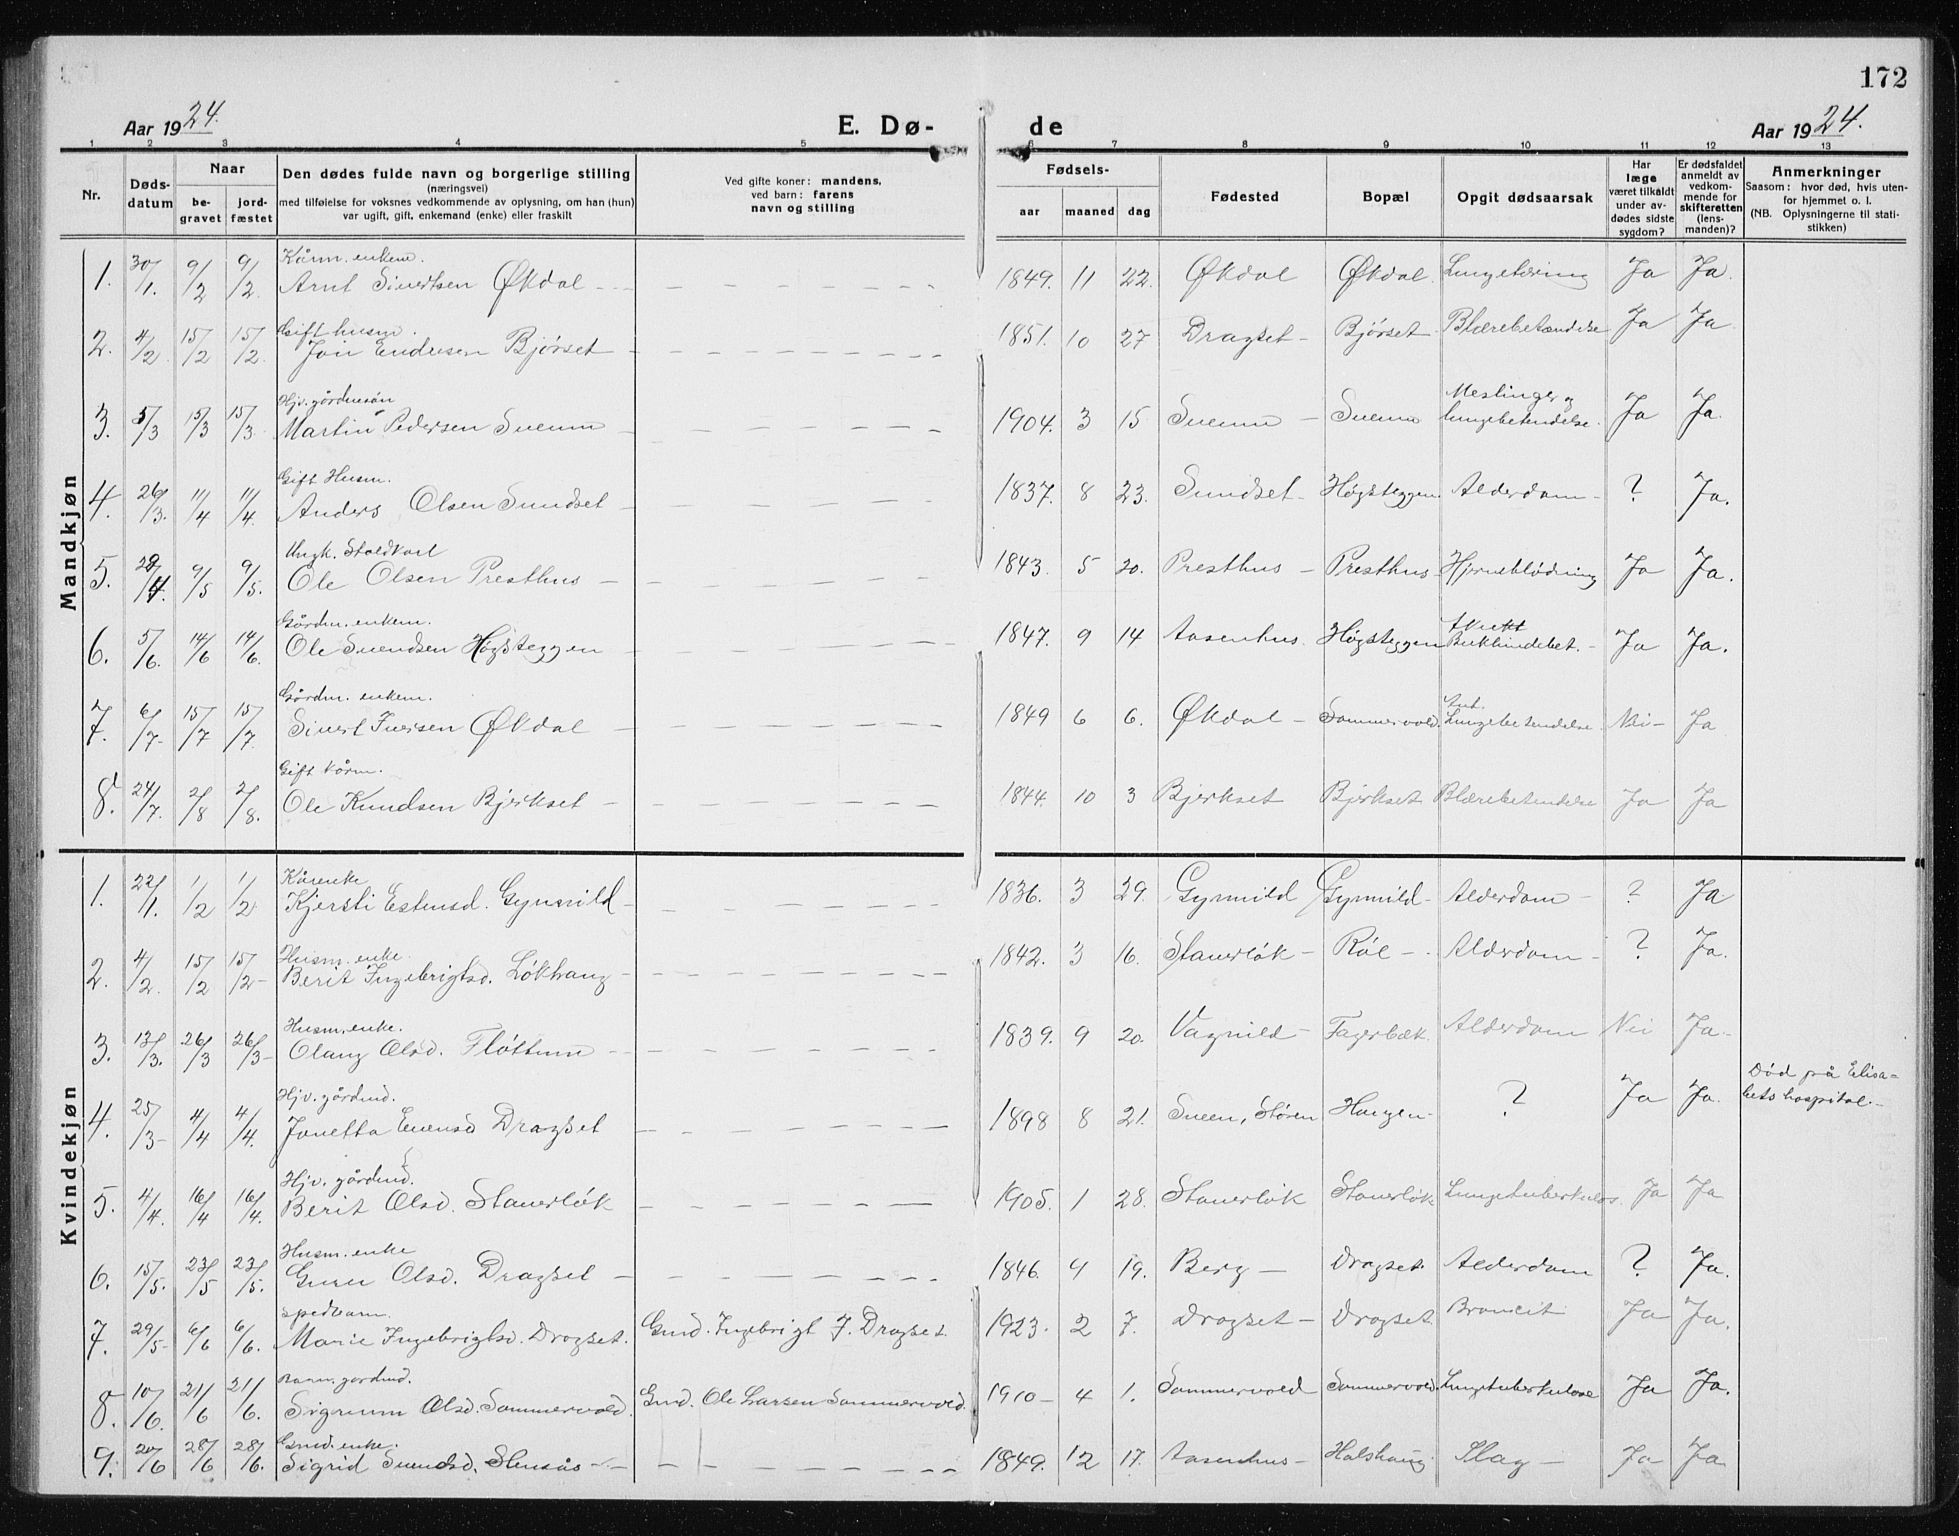 172
Aar 1924.
E. Dø-
de
Aar 1924.
1 2 3 4 5 6 7 8 9 10 11 12 13
Nr.
Døds-
datum
Naar
be-
gravet
jord-
fæstet
Den dødes fulde navn og borgerlige stilling
(næringsvei)
med tilføielse for voksnes vedkommende av oplysning, om han (hun)
var ugift, gift, enkemand (enke) eller fraskilt
Ved gifte koner: mandens,
ved barn: farens
navn og stilling
Fødsels-
aar
maaned
dag
Fødested
Bopæl
Opgit dødsaarsak
Har
læge
været tilkaldt
under av-
dødes sidste
sygdom?
Er dødsfaldet
anmeldt av
vedkom-
mende for
skifteretten
(lens-
manden)?
Anmerkninger
Saasom: hvor død, hvis uten-
for hjemmet o. l.
(NB. Oplysningerne til stati-
stikken)
Mandkjøn
Kårm. enkem.
1. 30/1. 9/2 9/2. Arnt Sivertsen Økdal - - - 1849. 11 22. Økdal Økdal. Lungetæring Ja Ja.
Gift husm.
2. 4/2. 15/2 15/2. Jon Endresen Bjørset - 1851. 10 27 Dragset - Bjørset Blærebetændelse Ja Ja.
Hjv. gårdmsøn
Meslinger og
3. 5/3 15/3 15/3. Martin Pedersen Sveum - 1904. 3 15 Sveum - Sveum lungebetendelse. Ja Ja.
Gift Husm.
4. 26/3. 11/4 11/4. Anders Olsen Sundset - 1837. 8 23. Sundset - Høgsteggen Alderdom - ? Ja.
Ungk. Stoldkarl
5. 28/4. 9/5 9/5. Ole Olsen Presthus - 1843. 5 20. Presthus - Presthus Hjerneblødning Ja Ja.
Gårdm. enkem.
Akutt
6. 5/6. 14/6 14/6. Ole Svendsen Høgsteggen 1847. 9 14 Aasenhus. Høgsteggen Bukhindebet. - Ja Ja.
Gårdm. enkem.
7. 6/7- 15/7 15/7. Sivert Iversen Økdal - 1849 6 6. Økdal - Sommervold. Lungebetendelse. Nei - Ja
Gift kårm.
8. 24/7. 2/8 2/8. Ole Knudsen Bjerkset - 1844. 10 3 Bjerkset Bjerkset Blærebetendelse Ja Ja
Kvindekjøn
Kårenke
1. 22/1. 1/2 1/2 Kjersti Estensd. Gynnild - 1836. 3 29. Gynnild Gynnild - Alderdom - ? Ja
Husm. enke.
2. 4/2. 15/2 15/2- Berit Ingebrigtsd. Løkhaug - 1842. 3 16. Staverløk - Røe - Alderdom - ? Ja.
Husm. enke.
3. 13/3. 26/3 26/3- Olaug Olsd. Fløttum - 1839. 9 20. Vagnild - Fagerbæk. Alderdom Nei Ja -
Hjv. gårdmd.
Død på Elisa-
4. 25/3- 4/4 4/4. Jonetta Evensd Dragset 1898 8 21. Sneen, Støren Haugen - ? Ja Ja. bets hospital. -
Hjv. gårdmd.
5. 4/4. 16/4 16/4. Berit Olsd. Staverløk 1905. 1 28. Staverløk Staverløk Lungetuberkulos. Ja Ja
Husm. enke
6. 15/5. 23/5 23/5. Guru Olsd. Dragset - 1846. 4 19. Berg - Dragset. Alderdom ? Ja.
Spedbarn.
7. 29/5- 6/6 6/6. Marie Ingebrigtsd. Dragset. Gmd. Ingebrigt J. Dragset. 1923. 2 7. Dragset - Dragset. Broncit Ja Ja.
Barn. gardmd.
8. 10/6. 21/6 21/6. Sigrunn Olsd. Sommervold. Gmd. Ole Larsen Sommervold. 1910 - 4 1. Sommervold Sommervold. Lungetuberkulose Ja Ja.
Gmd. enke.
9. 20/6 28/6 28/6. Sigrid Svendsd. Stensås - - 1849. 12 17. Aasenhus - Halshaug. Slag - Ja Ja.